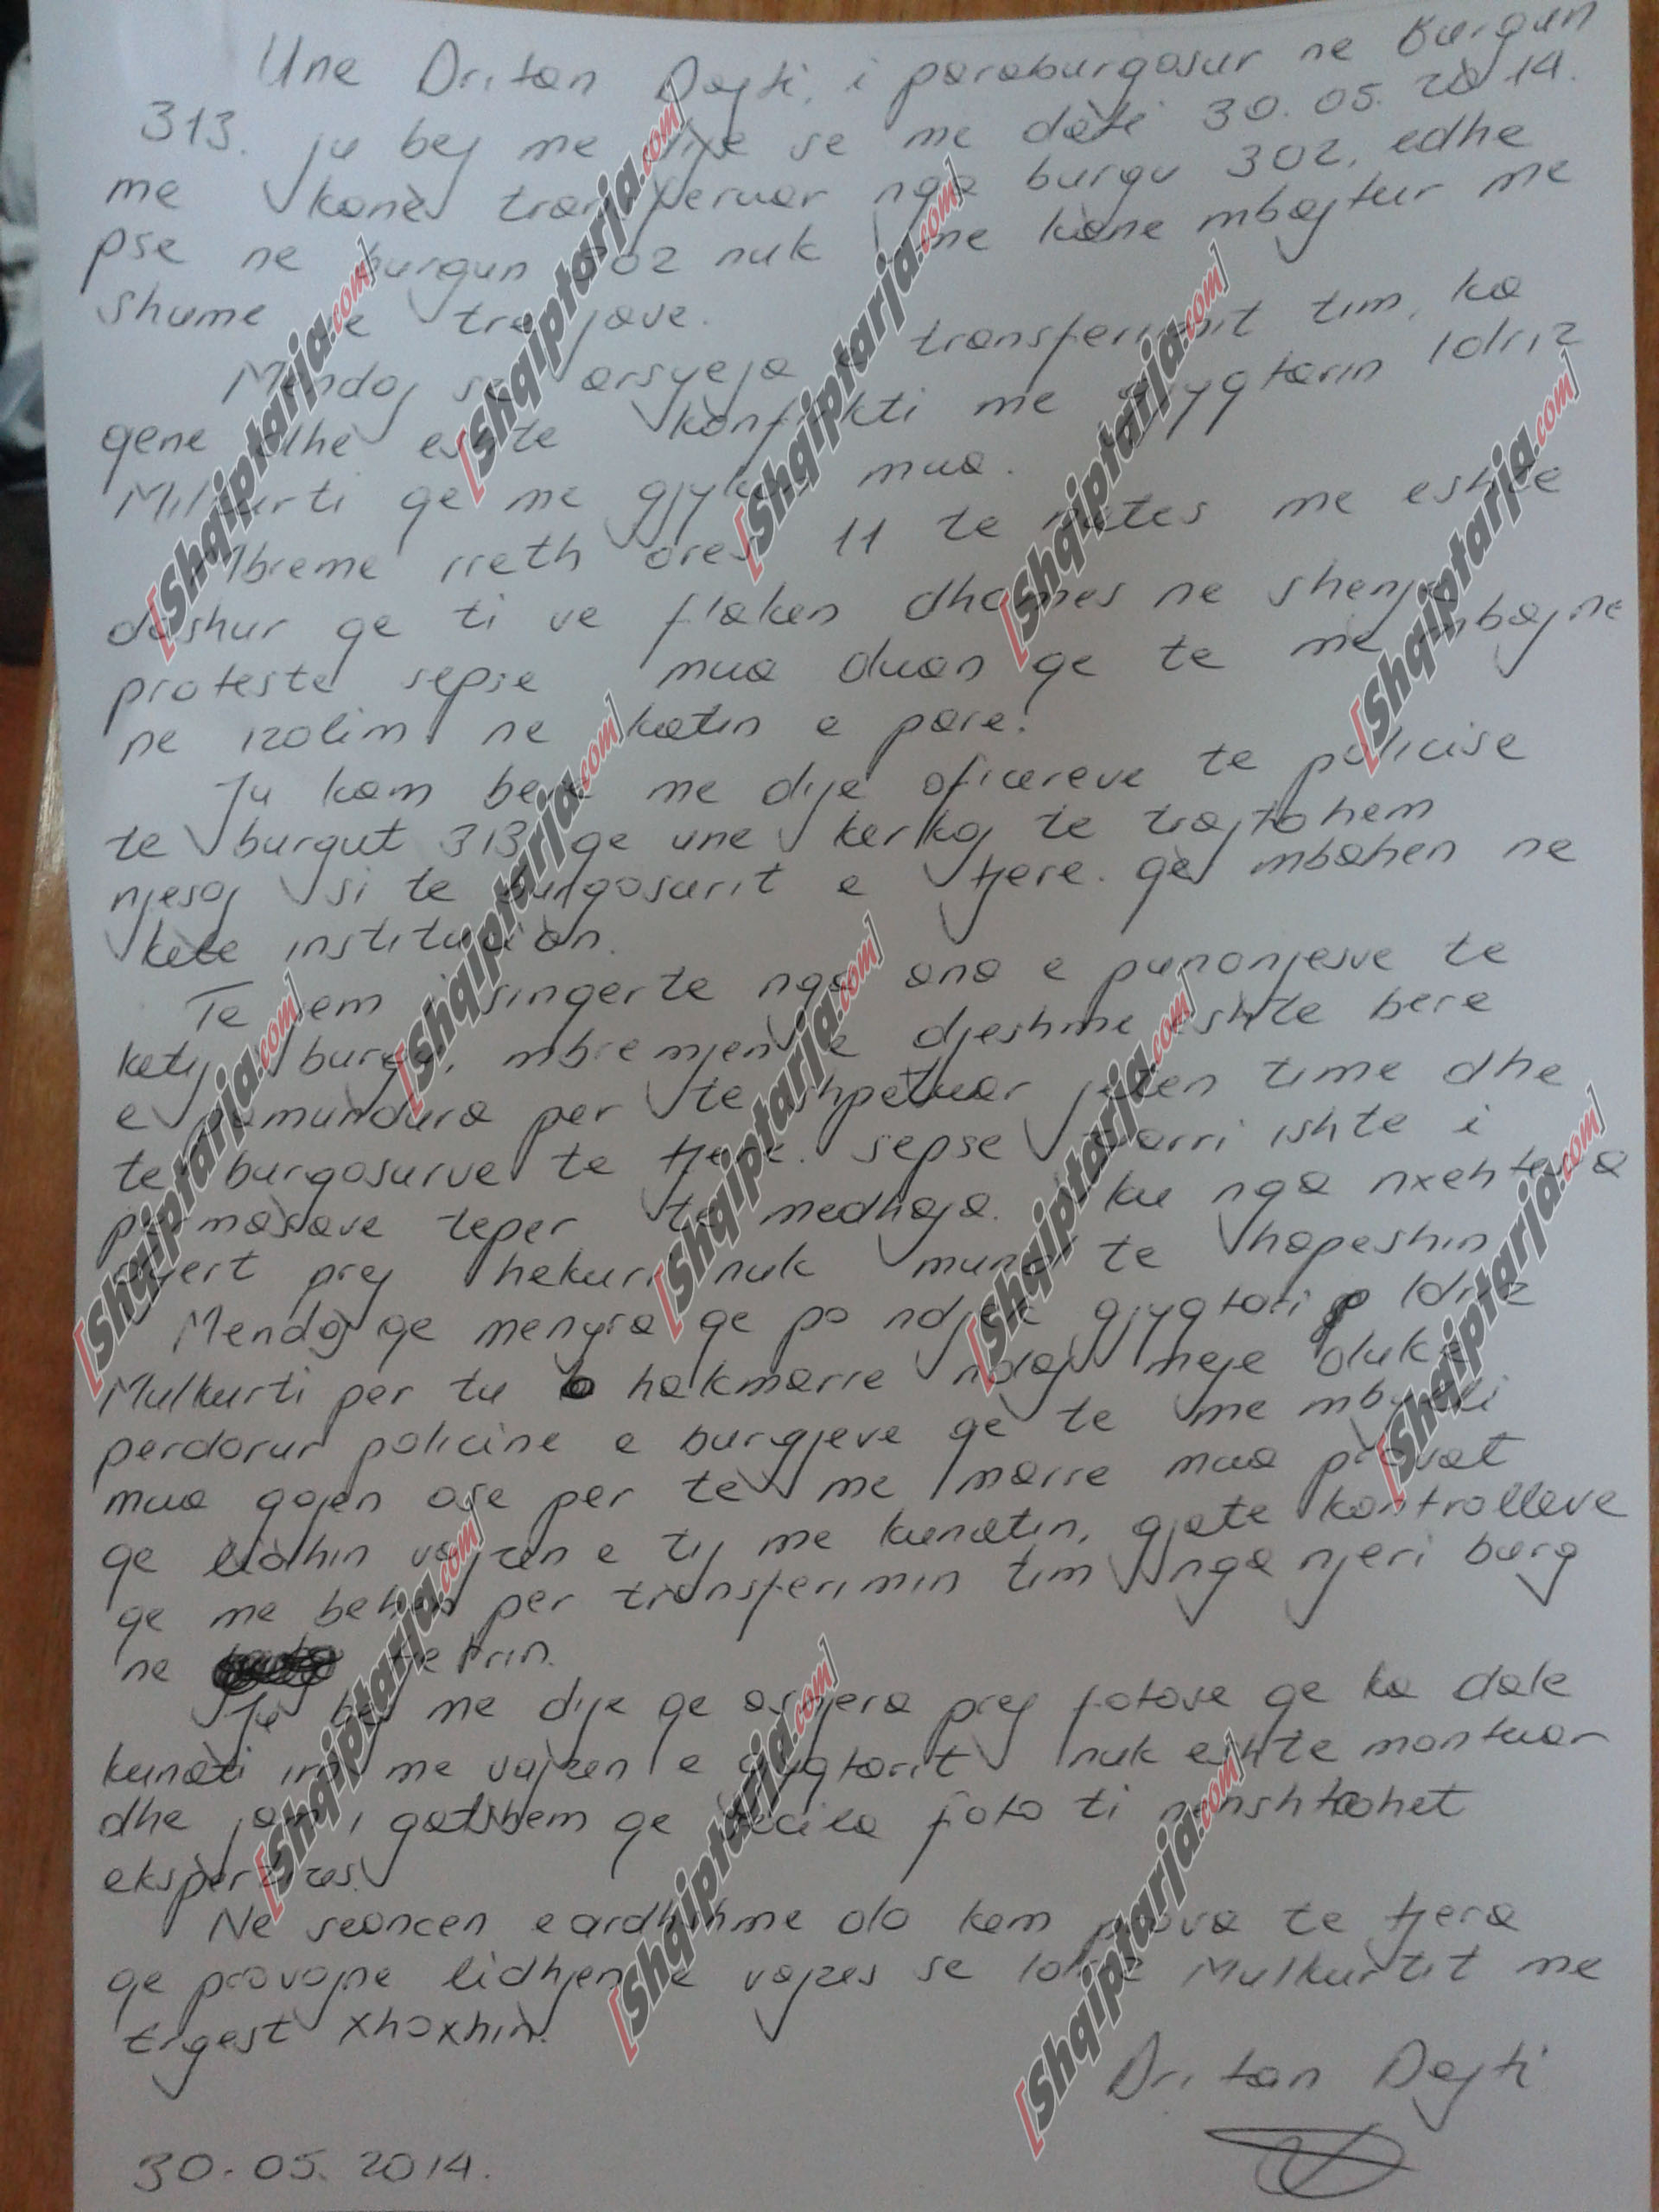 Une Dritan Dajti, i paraburgosur ne Burgun
313. ju bej me dije se me date 30.05.2014.
me kane transferuar nga burgu 302, edhe
pse ne burgun 302 nuk me kane mbajtur me
shume se tre jave.
Mendoj se arsyeja e transferimit tim, ka
qene dhe eshte konflikti me gjyqtarin Idriz
Mulkurti qe me gjykon mua.
Mbreme rreth ores 11 te nates me eshte
dashur qe ti ve flaken dhomes ne shenje
proteste sepse mua duan qe te me mbajne
ne izolim ne katin e pare.
Ju kam bere me dije oficereve te policise
te burgut 313 qe une kerkoj te trajtohem
njesoj si te burgosurit e tjere. qe mbahen ne
kete institucion.
Te jem i singerte nga ana e punonjesve te
ketij burgu, mbremjen e djeshme eshte bere
e pamundura per te shpetuar jeten time dhe
te burgosurve te tjere. sepse zjarri ishte i
permasave teper te medhaja. ku nga nxehtesia
dyert prej hekuri nuk mund te hapeshin
Mendoj qe menyra qe po ndjek gjyqtari Idriz
Mulkurti per tu hakmarre ndaj meje duke
perdorur policine e burgjeve qe te me mbylli
mua gojen ose per te me marre mua provat
qe lidhin vajzen e tij me kunatin, gjate kontrolleve
qe me behen per transferimin tim nga njeri burg
ne tjetrin.
Ju bej me dije qe asnjera prej fotove qe ka dale
kunati im me vajzen e gjyqtarit nuk eshte montuar
dhe jam i gatshem qe secila foto ti nenshtrohet
ekspertizes.
Ne seancen e ardhshme do kem prova te tjera
qe provojne lidhjen e vajzes se Idriz Mulkurtit me
Ergest Xhoxhin.
Dritan Dajti
30.05.2014.
[Shqiptarja.com]
[Shqiptarja.com]
[Shqiptarja.com]
[Shqiptarja.com]
[Shqiptarja.com]
[Shqiptarja.com]
[Shqiptarja.com]
[Shqiptarja.com]
[Shqiptarja.com]
[Shqiptarja.com]
[Shqiptarja.com]
[Shqiptarja.com]
[Shqiptarja.com]
[Shqiptarja.com]